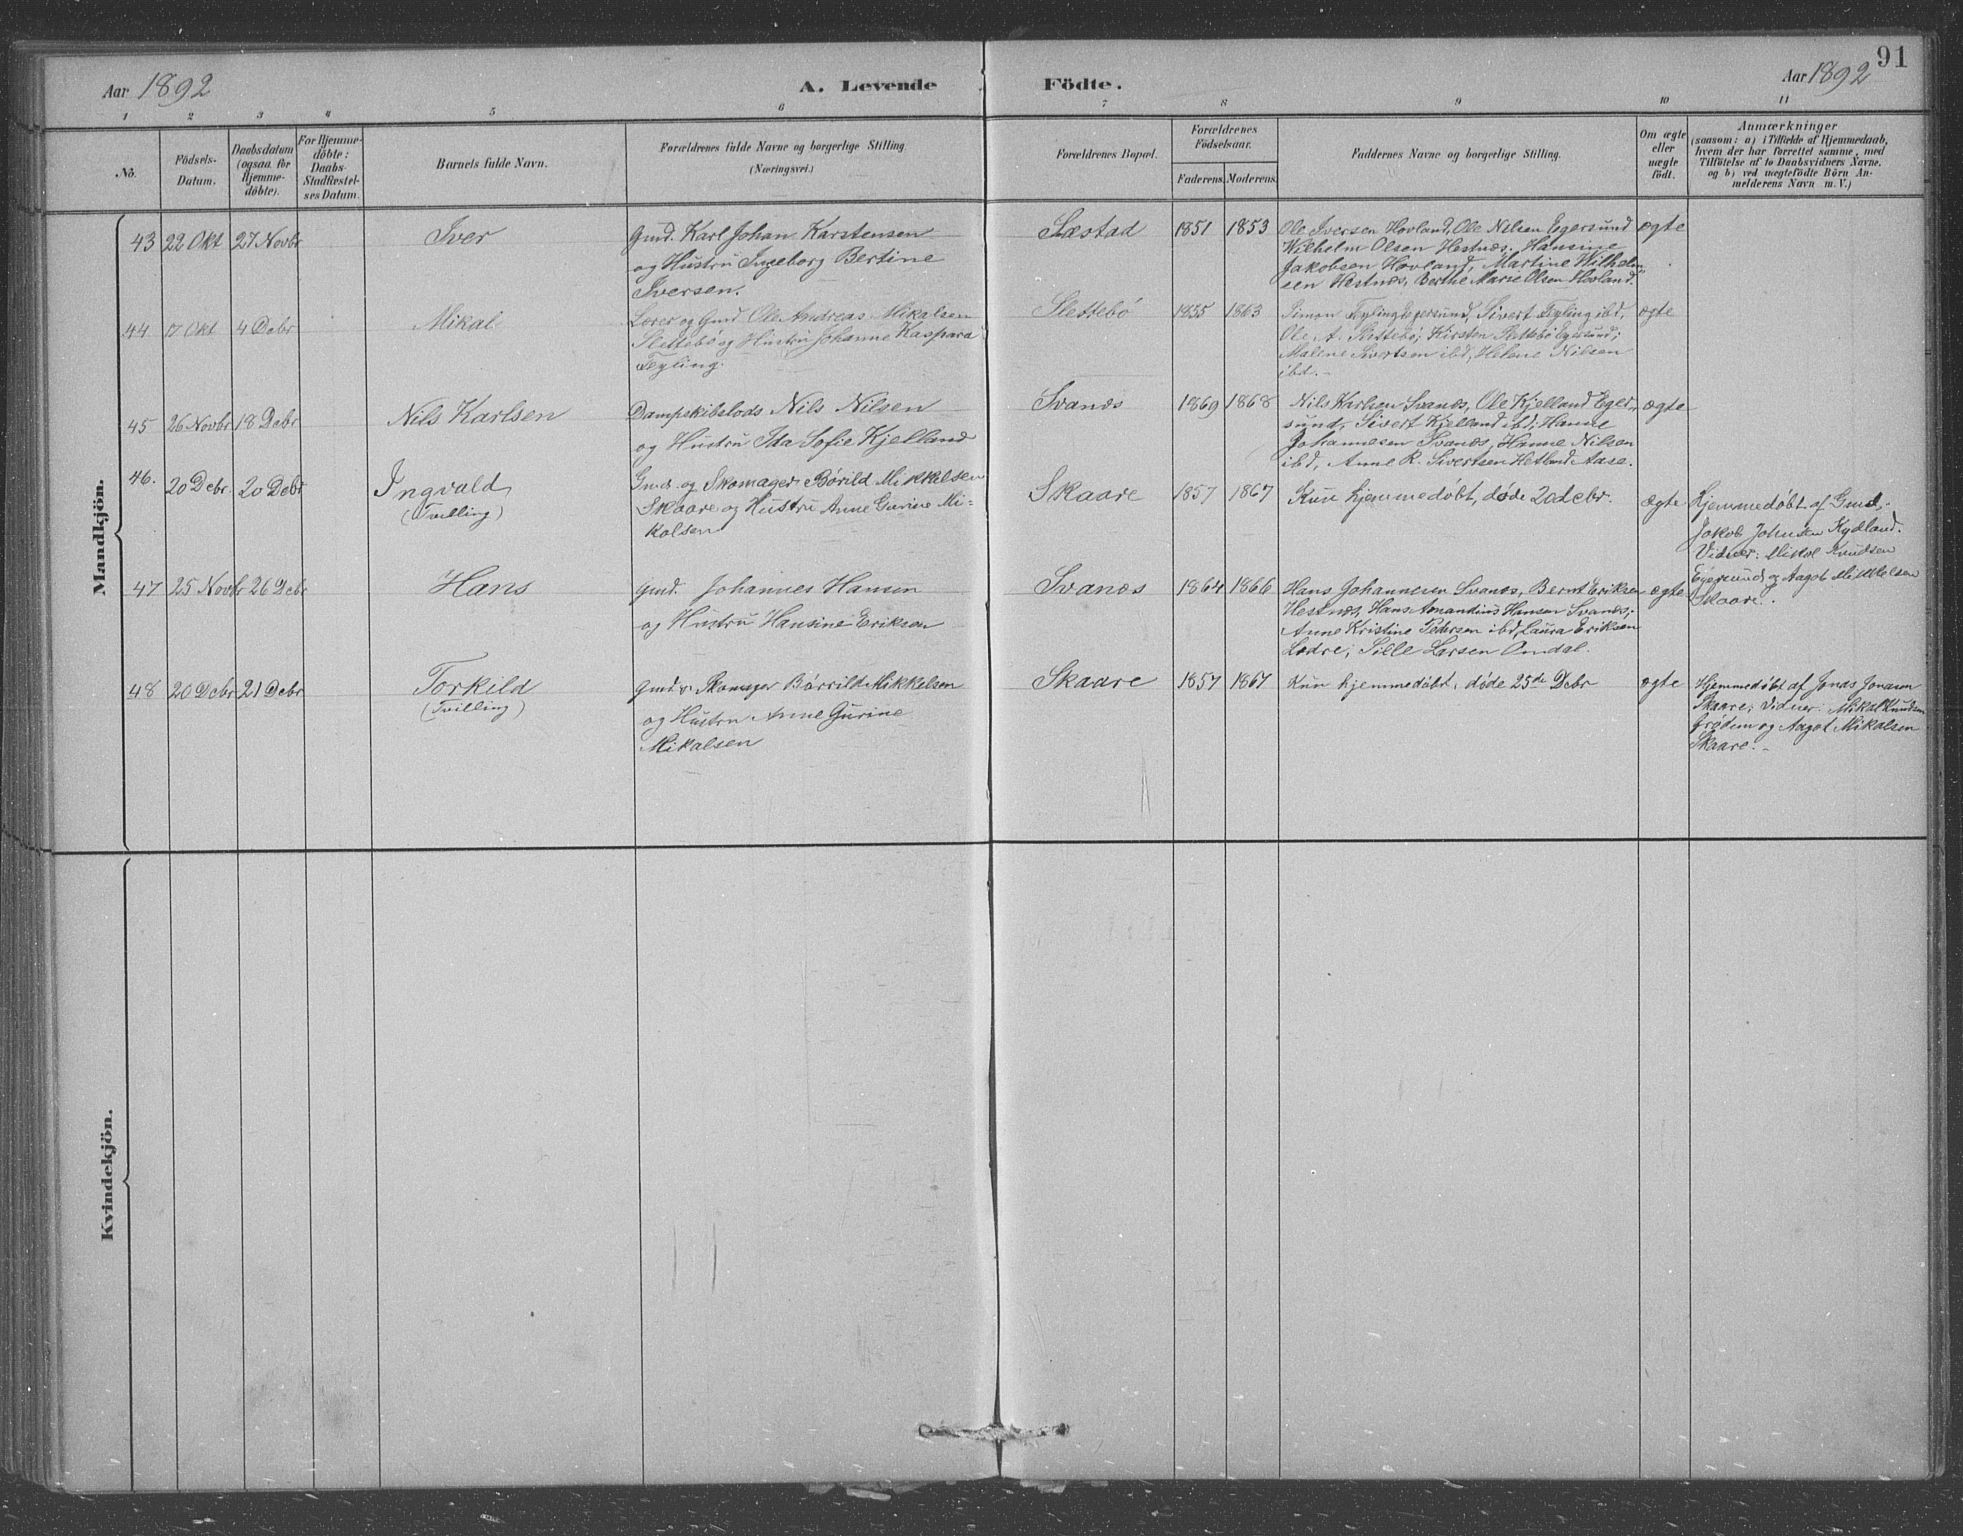 91
Aar 1892
A. Levende Födte.
Aar 1892
1 2 3 4 5 6 7 8 9 10 11
No.
Födsels-
Datum.
Daabsdatum
(ogsaa for
Hjemme-
döbte).
For Hjemme-
döbte:
Daabs-
Stadfæstel-
ses Datum.
Barnets fulde Navn.
Forældrenes fulde Navne og borgerlige Stilling.
(Næringsvei.)
Forældrenes Bopæl.
Forældrenes
Födselsaar.
Faderens. Moderens.
Faddernes Navne og borgerlige Stilling.
Om ægte
eller
uægte
födt.
Anmærkninger
(saasom: a) i Tilfælde af Hjemmedaab,
hvem der har forrettet samme, med
Tilföielse af to Daabsvidners Navne,
og b) ved uægtefödte Börn An-
melderens Navn m. V.)
Mandkjön.
43 22 Okt 27 Novbr Iver
Gmd. Karl Johan Karstensen
og Hustru Ingeborg Bertine
Iversen.
Sæstad 1851 1853
Ole Iversen Hovland, Ole Nilsen Egersund
Wilhelm Olsen Hestnæs, Hansine
Jakobsen Hovland, Martine Wilhelm-
sen Hestnæs, Berthe Marie Olsen Hovland.
ægte
44 17 Okt 4 Debr Mikal
Lærer og Gmd Ole Andreas Mikalsen
Slettebø og Hustru Johanne Kaspara
Teyling.
Slettebö 1855 1863
Simon Teyling Egersund, Sivert Teyling ibd,
Ole A. Slettebø, Kirsten Slettebö Egersund;
Malene Sivertsen ibd, Helene Nilsen
ibd.-
ægte
45 26 Novbr 18 Debr Nils Karlsen
Dampskibslods Nils Nilsen
og Hustru Ida Sofie Kjelland
Svanæs 1869 1868
Nils Karlsen Svanæs, Ole Kjelland Eger-
sund, Sivert Kjelland ibd; Hanne
Johannesen Svanæs, Hanne Nilsen
ibd, Anne R. Sivertsen Hetland Aase.
ægte
46. 20 Debr. 20 Debr Ingvald
(Tvilling)
Gmd. og Skomager Børild Mikkelsen
Skaare og Hustru Anne Gurine Mi-
kalsen
Skaare 1857 1867
Kun hjemmedøbt, døde 20 Debr.
ægte
Hjemmedøbt af Gmd.
Jakob Johnsen Kydland.
Vidner: Mikal Knudsen
Egersund og Aagot Mikkelsen
Skaare.
47 25 Novbr 26 Debr Hans
Gmd. Johannes Hansen
og Hustru Hansine Eriksen
Svanæs 1864 1866
Hans Johannesen Svanæs, Bernt Eriksen
Hestnæs, Hans Amandius Hansen Svanæs;
Anne Kristine Pedersen ibd, Laura Eriksen
Lædre, Sille Larsen Omdal.
ægte
48 20 Debr 21 Debr Torkild
(Tvilling)
Gmd. Skomager Børrild Mikkelsen
og Hustru Anne Gurine
Mikalsen
Skaare 1857 1867
Kun hjemmedøbt, døde 25de Debr
ægte
Hjemmedøbt af Jonas Jonasen
Skaare; Vidner: Mikal Knudsen
Grødem og Aagot Mikalsen
Skaare.-
Kvindekjön.